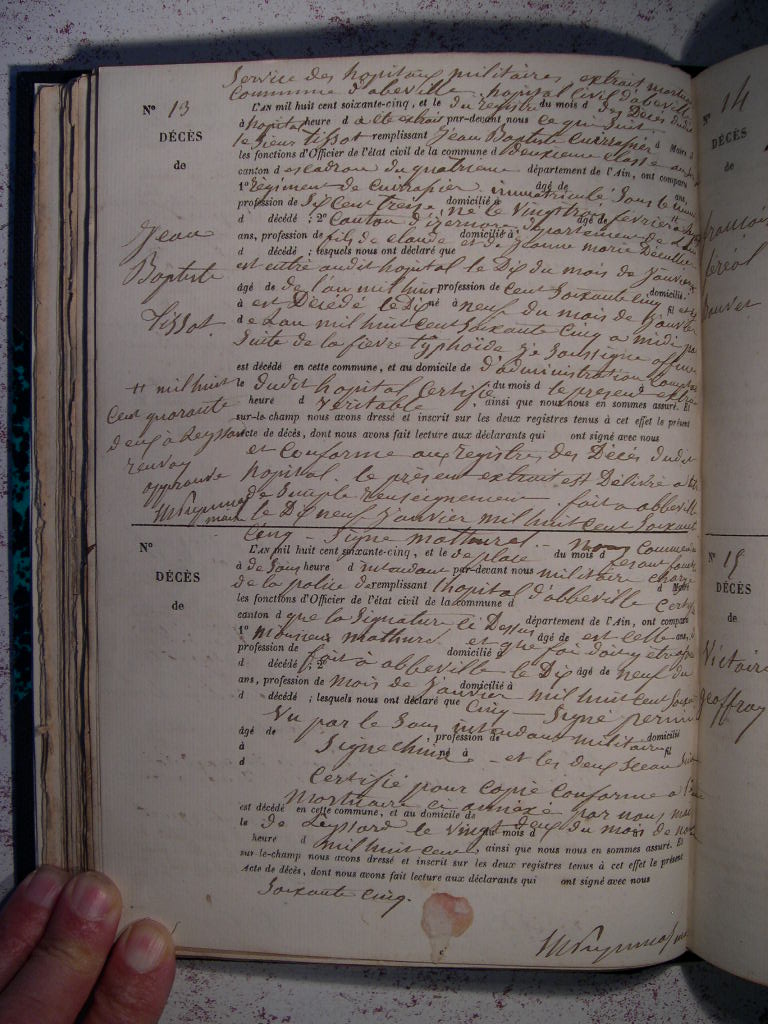 Service des hopitaux militaires extrait mortuaire
Commune d'abeville hopital civil d'abeville
N° 13
DÉCÈS
de
Jean
Baptiste
Tissot
L'AN mil huit cent soixante-cinq, et le du registre du mois d des Décès dudit
à hopital heure d a été extrait par-devant nous ce qui suit
le sieur tissot remplissant Jean Baptiste cuirassier d Maire d
les fonctions d'Officier de l'état civil de la commune d deuxieme classe au
canton d escadron du quatrieme département de l'Ain, ont comparu
1° Régiment de Cuirassier immatriculé sous le numero âgé de ans,
profession de Six cent treize domicilié à né le Vingt trois février
d décédé ; 2° canton d'izernore département de l'ain âgé de
ans, profession de fils de claude et de Jeanne marie domicilié à
d décédé ; lesquels nous ont déclaré que
est entré audit hopital le Dix du mois de Janvier
âgé de de l'an mil huit profession de Cent Soixante Cinq domicilié
à est Décédé le Dix né à neuf du mois de Janvier fil
d e l'an mil huit Cent Soixante Cinq a midi par
Suite de la fievre typhoïde Je Soussigné officier
est décédé en cette commune, et au domicile de d'administration comptable
le dudit hopital Certifie du mois d le présent extrait
heure d Veritable ainsi que nous nous en sommes assuré. Et
sur-le-champ nous avons dressé et inscrit sur les deux registres tenus à cet effet le présent
acte de décès, dont nous avons fait lecture aux déclarants qui ont signé avec nous
et Conforme aux registres des Décès dudit
hopital. le présent extrait est Délivré a titre
de Simple renseignement. fait a abbeville
le Dix neuf Janvier mil huit Cent Soixante
# mil huit
Cent quarante
deux a Leyssard
renvoy
approuvé
maire
Cinq - Signé mathurel - Nous
N°
DÉCÈS
de
L'AN mil huit cent soixante-cinq, et le de place du mois d faisant fonction
à de Sous heure d intendant par-devant nous militaire chargé
de la police de remplissant l'hopital d'abbeville Certifie d Maire
les fonctions d'Officier de l'état civil de la commune d
canton d que la Signature ci Dessus département de l'Ain, ont comparu
1° Monsieur mathurel âgé de est celle ans,
profession de et que foi doit y etre domicilié à
d décédé ; 2° fait à abbeville le Dix âgé de neuf du
ans, profession de mois de Janvier domicilié à mil huit Cent Soixante
d décédé ; lesquels nous ont déclaré que Cinq - Signé
Vu par le Sous intendant militaire
âgé de profession de domicilié
à Signé né à et les deux Sceaux fil
d
Certifié pour Copie Conforme a
Mortuaire ci annexé par nous maire
est décédé en cette commune, et au domicile de
le de Leyssard le Vingt deux du mois d du mois de
heure d mil huit Cent ainsi que nous nous en sommes assuré. Et
sur-le-champ nous avons dressé et inscrit sur les deux registres tenus à cet effet le présent
acte de décès, dont nous avons fait lecture aux déclarants qui ont signé avec nous
Soixante Cinq.
N° 14
DÉCÈS
de
N° 15
DÉCÈS
de
Victoire
Geoffray